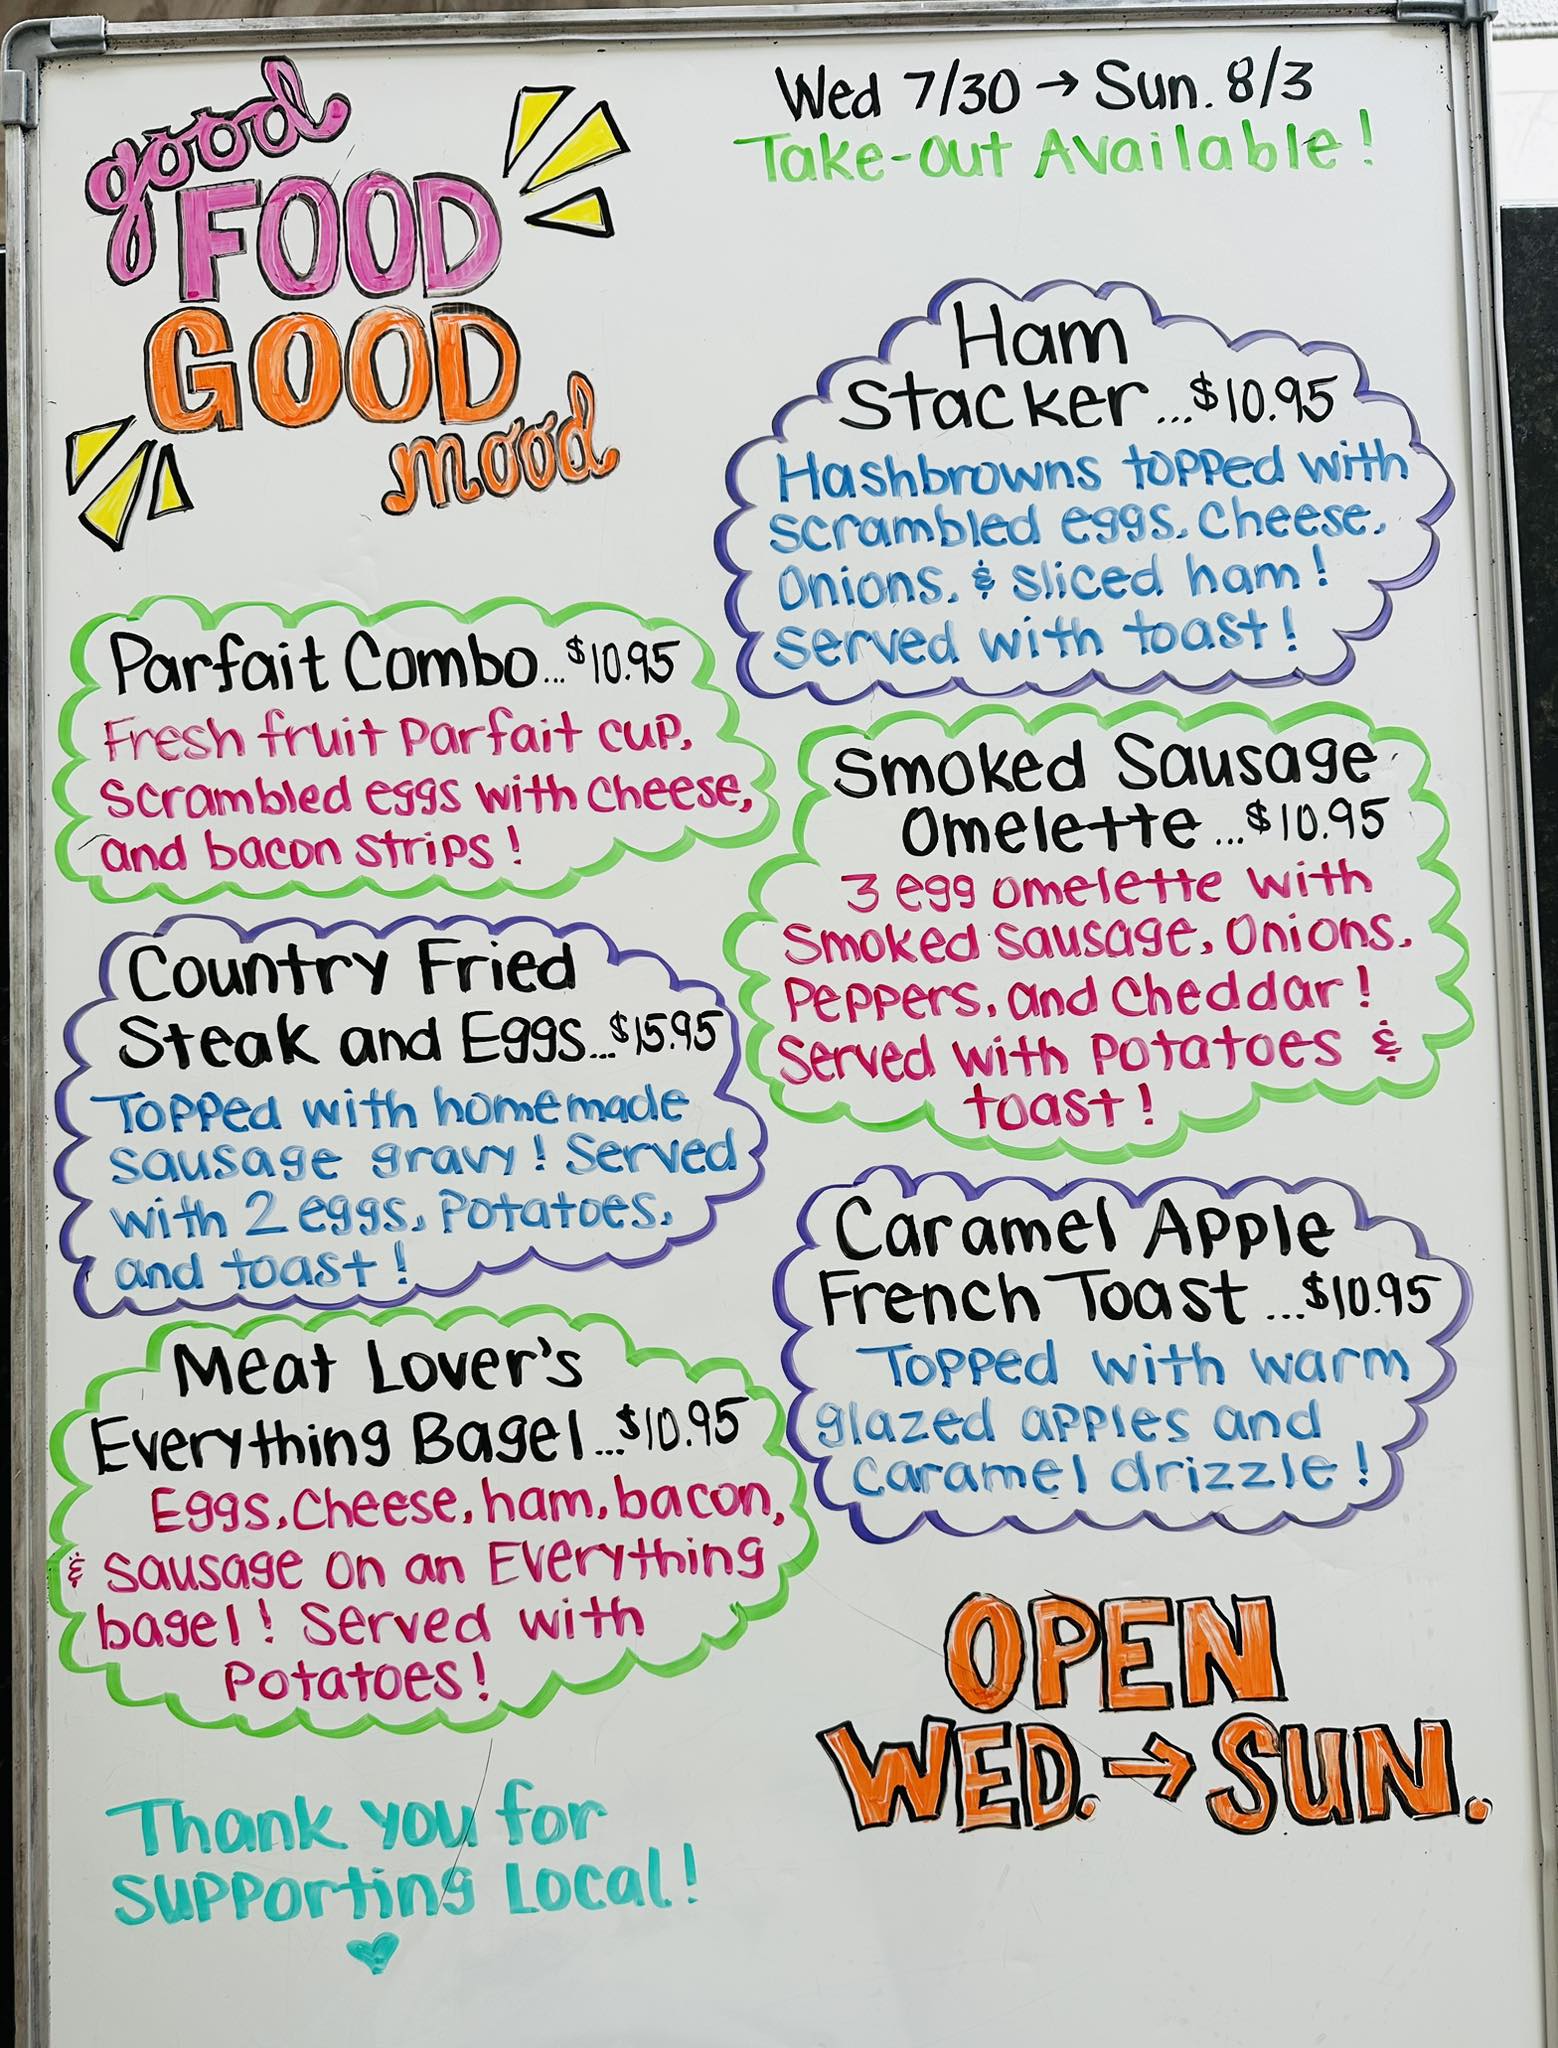 good
FOOD
GOOD
mood
Wed 7/30 → Sun. 8/3
Take-out Available!
Parfait Combo...$10.95
Fresh fruit parfait cup,
scrambled eggs with cheese,
and bacon strips!
Country Fried
Steak and Eggs...$15.95
Topped with homemade
sausage gravy! Served
with 2 eggs, potatoes,
and toast!
Meat Lover's
Everything Bagel...$10.95
Eggs, cheese, ham, bacon,
& sausage on an Everything
bagel! Served with
potatoes!
Thank you for
supporting Local!
Ham
Stacker...$10.95
Hashbrowns topped with
scrambled eggs, cheese,
onions, & sliced ham!
Served with toast!
Smoked Sausage
Omelette...$10.95
3 egg omelette with
smoked sausage, onions,
peppers, and cheddar!
Served with potatoes &
toast!
Caramel Apple
French Toast...$10.95
Topped with warm
glazed apples and
caramel drizzle!
OPEN
WED. → SUN.